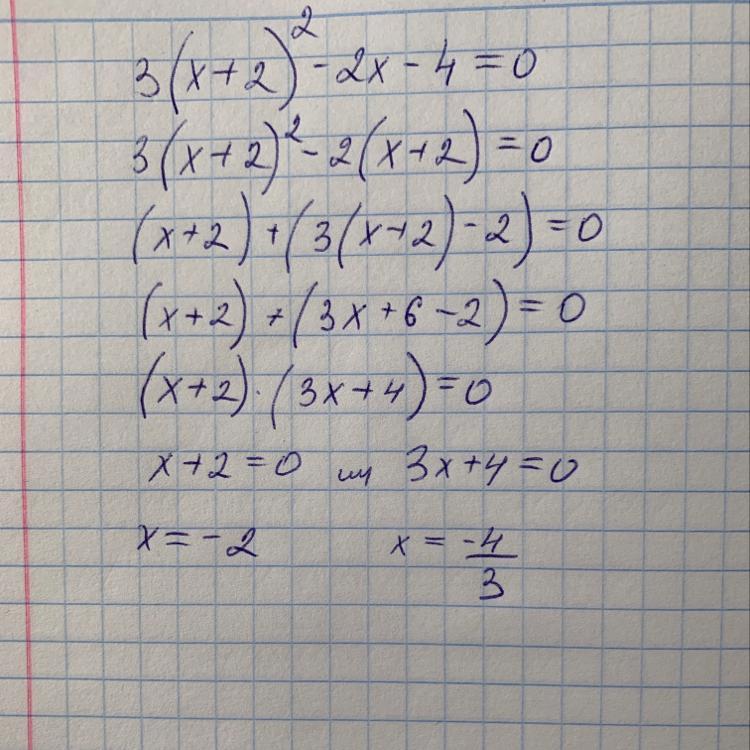 3(x+2)² - 2x - 4 = 0
3(x+2)² - 2(x+2) = 0
(x+2) + (3(x+2) - 2) = 0
(x+2) + (3x+6-2) = 0
(x+2) · (3x+4) = 0
x+2=0 3x+4=0
x = -2 x = -4/3